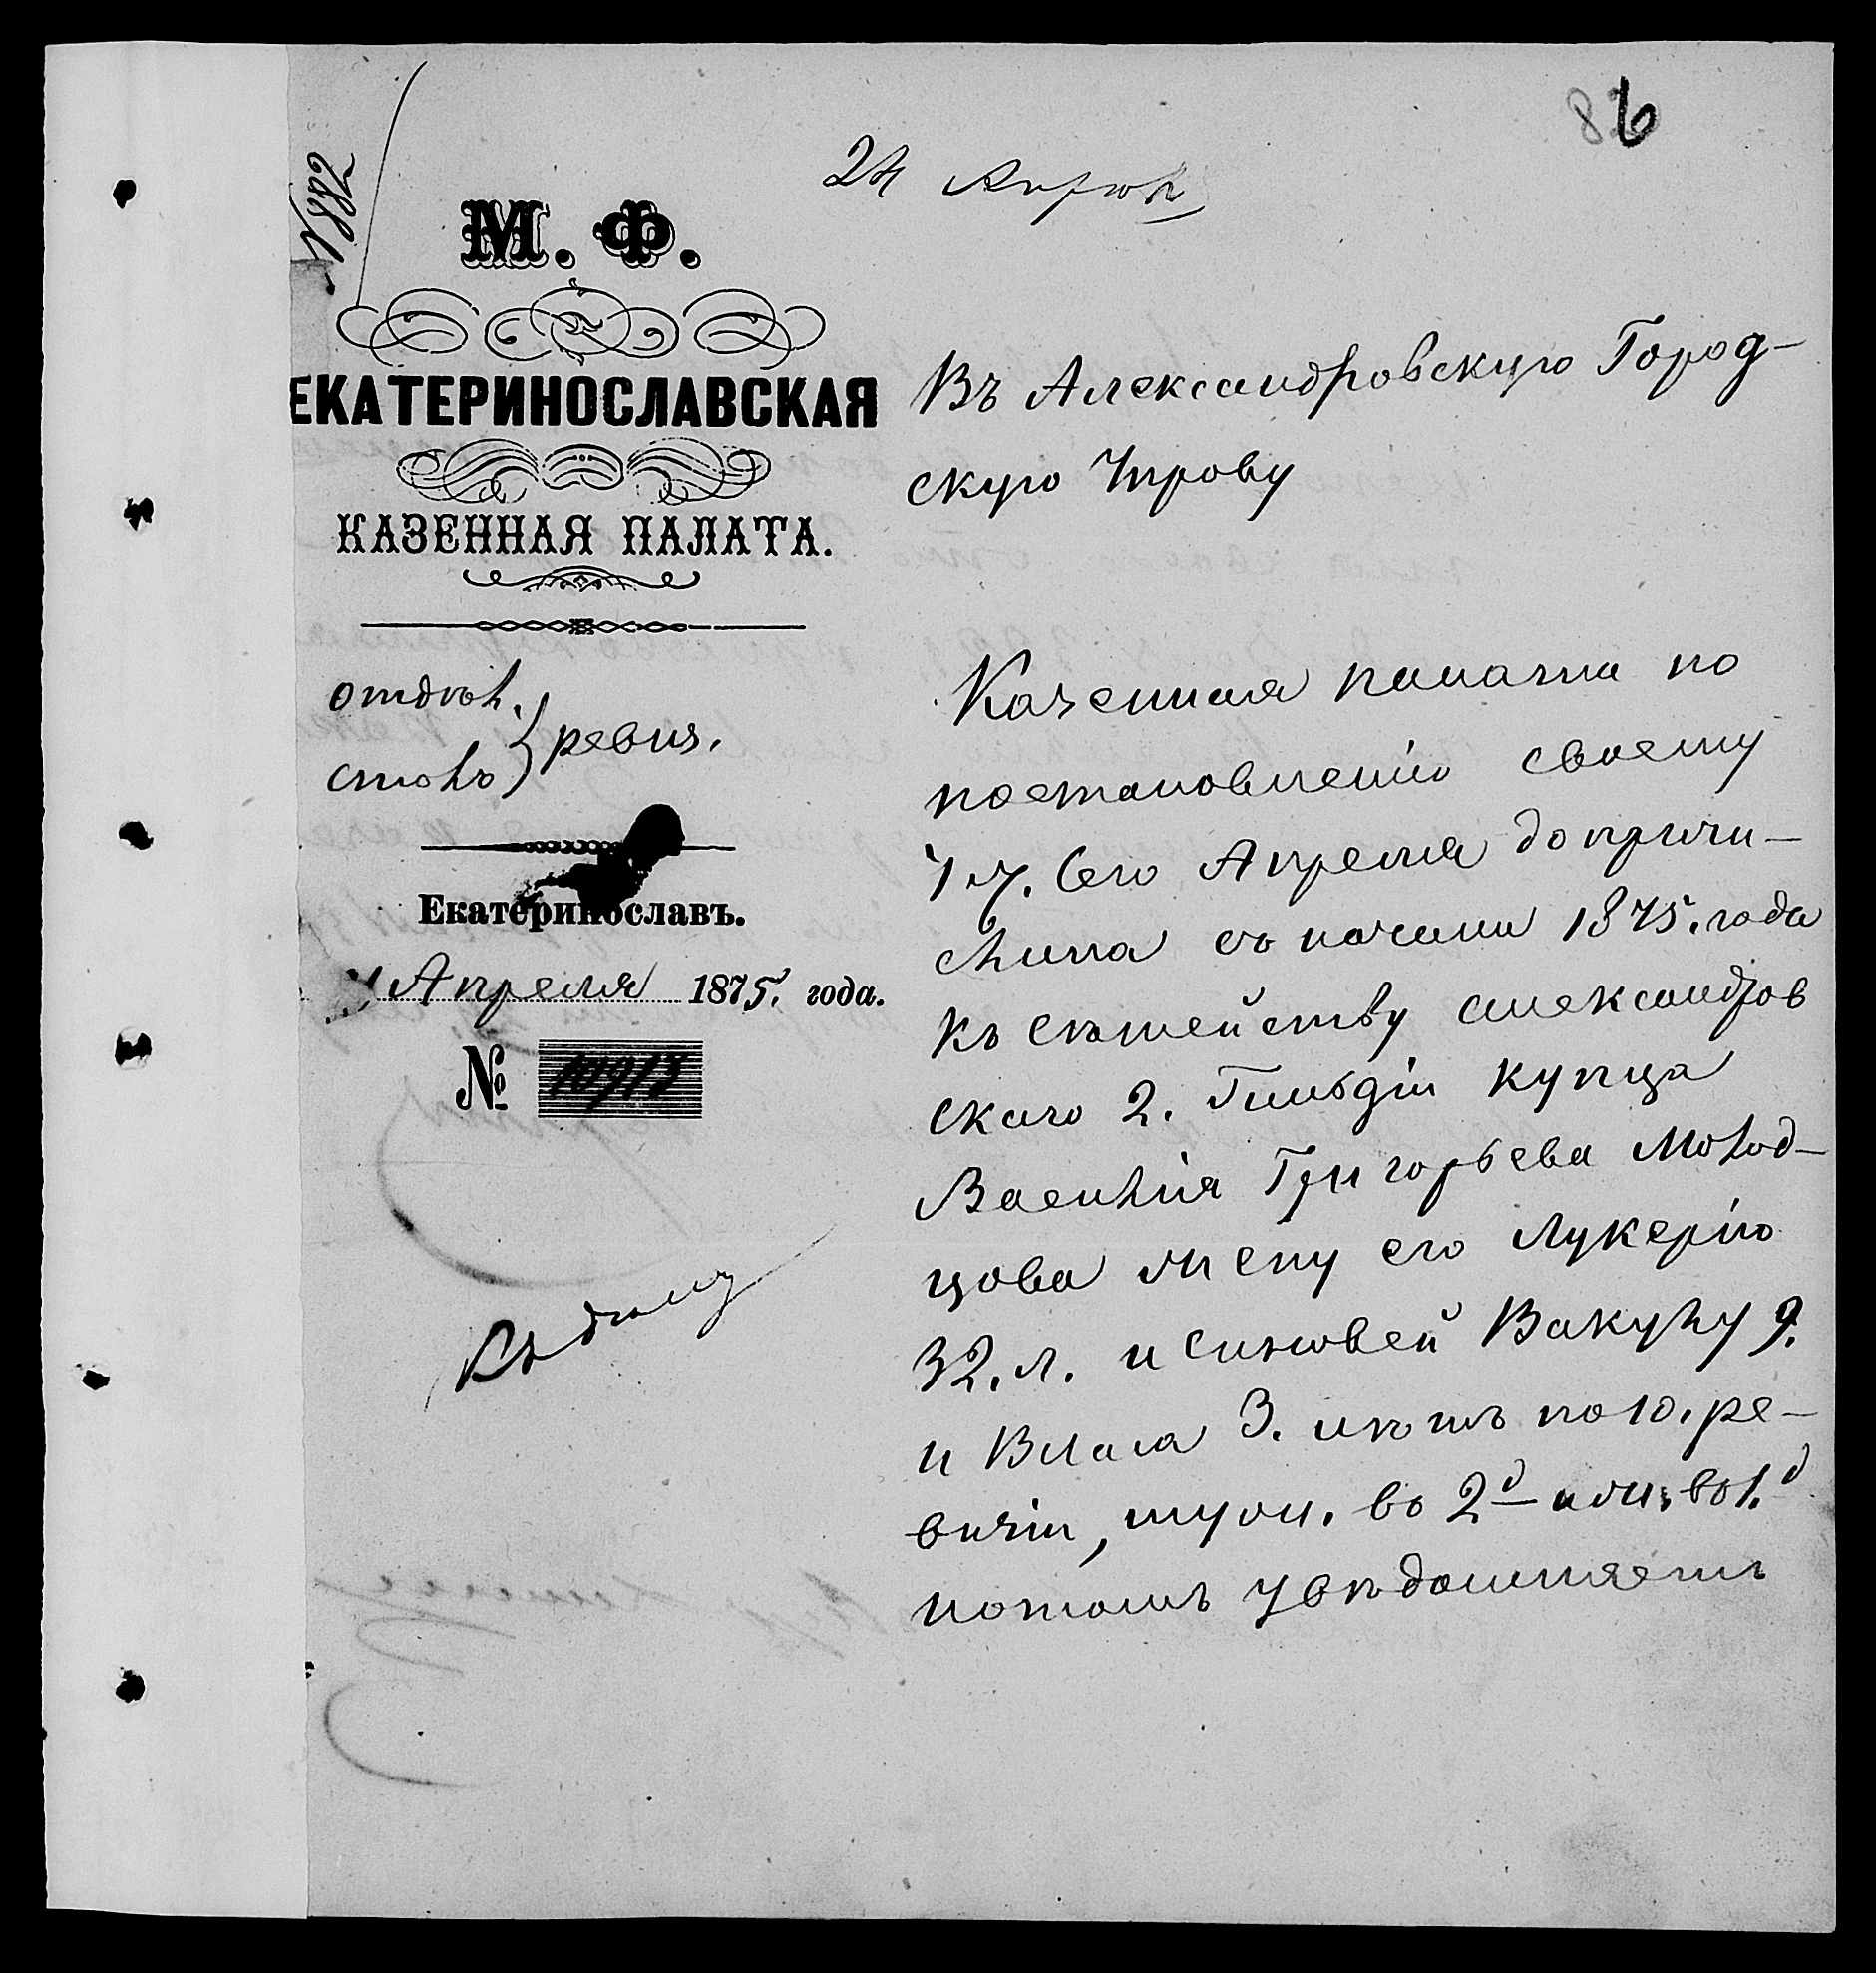 86
№ 882
24 Апрѣл
М. Ф.
ЕКАТЕРИНОСЛАВСКАЯ
КАЗЕННАЯ ПАЛАТА.
отдѣл.
столъ } ревиз.
Екатеринославъ.
Апреля 1875. года.
№ 10913
Къ дѣлу
Въ Александровскую Город-
скую Управу
Казенная палата по
постановленію своему
17. сего Апреля до причи-
слила съ начала 1875. года
къ сѣмейству александров
скаго 2. Гильдіи купца
Василія Григорьева Молод-
цова жену его Лукерію
32. л. и сыновей Вакулу 9.
и Власа 3. лѣтъ по 10. ре-
визіи, муж. во 2й а ж. во 1.й
о томъ увѣдомляетъ